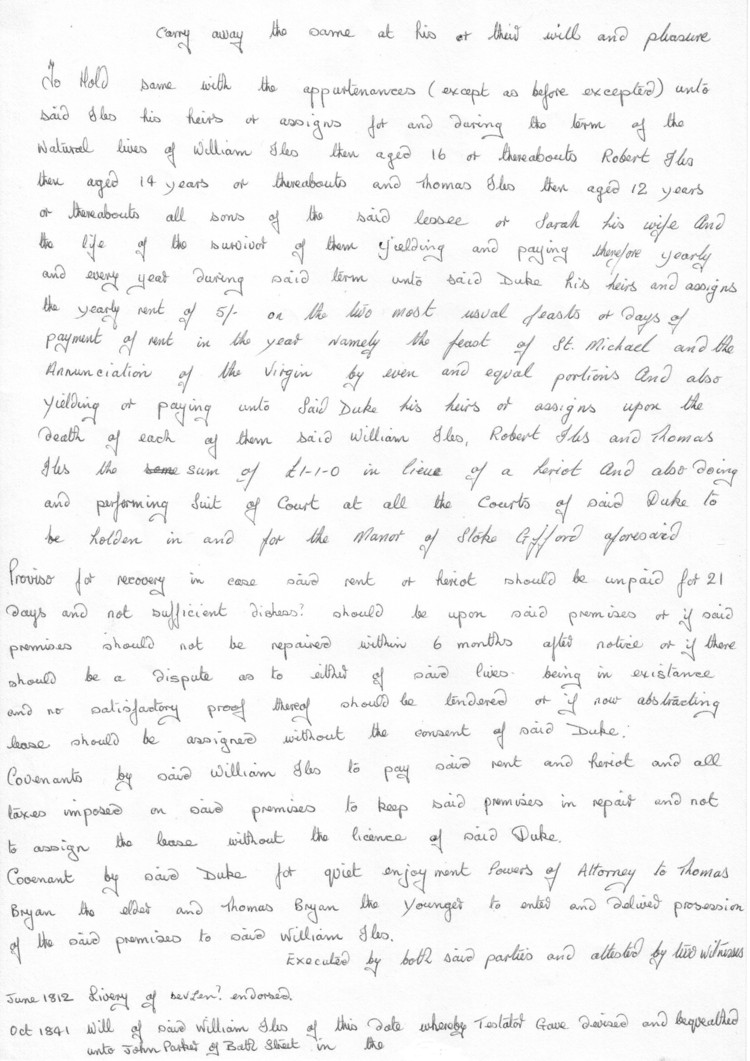 carry away the same at his or their will and pleasure
To Hold same with the appurtenances (except as before excepted) unto
said Iles his heirs or assigns for and during the term of the
Natural lives of William Iles then aged 16 or thereabouts Robert Iles
then aged 14 years or thereabouts and Thomas Iles then aged 12 years
or thereabouts all sons of the said lessee or Sarah his wife And
the life of the survivor of them Yielding and paying therefore yearly
and every year during said term unto said Duke his heirs and assigns
the yearly rent of 5/- on the two most usual feasts or days of
payment of rent in the year namely the feast of St. Michael and the
Annunciation of the Virgin by even and equal portions And also
Yielding or paying unto Said Duke his heirs or assigns upon the
death of each of them said William Iles, Robert Iles and Thomas
Iles the same sum of £1-1-0 in lieue of a heriot And also doing
and performing Suit of Court at all the Courts of said Duke to
be holden in and for the Manor of Stoke Gifford aforesaid
Proviso for recovery in case said rent or heriot should be unpaid for 21
days and not sufficient distress? should be upon said premises or if said
premises should not be repaired within 6 months after notice or if there
should be a dispute as to either of said lives being in existance
and no satisfactory proof thereof should be tendered or if now abstracting
lease should be assigned without the consent of said Duke.
Covenants by said William Iles to pay said rent and heriot and all
taxes imposed on said premises to keep said premises in repair and not
to assign the lease without the licence of said Duke.
Covenant by said Duke for quiet enjoyment Powers of Attorney to Thomas
Bryan the elder and Thomas Bryan the Younger to enter and deliver prosession
of the said premises to said William Iles.
Executed by both said parties and attested by two witnesses
June 1812 Livery of endorsed.
Oct 1841 Will of said William Iles of this date whereby Testator Gave devised and bequeathed
unto John Parker of Bath Street in the